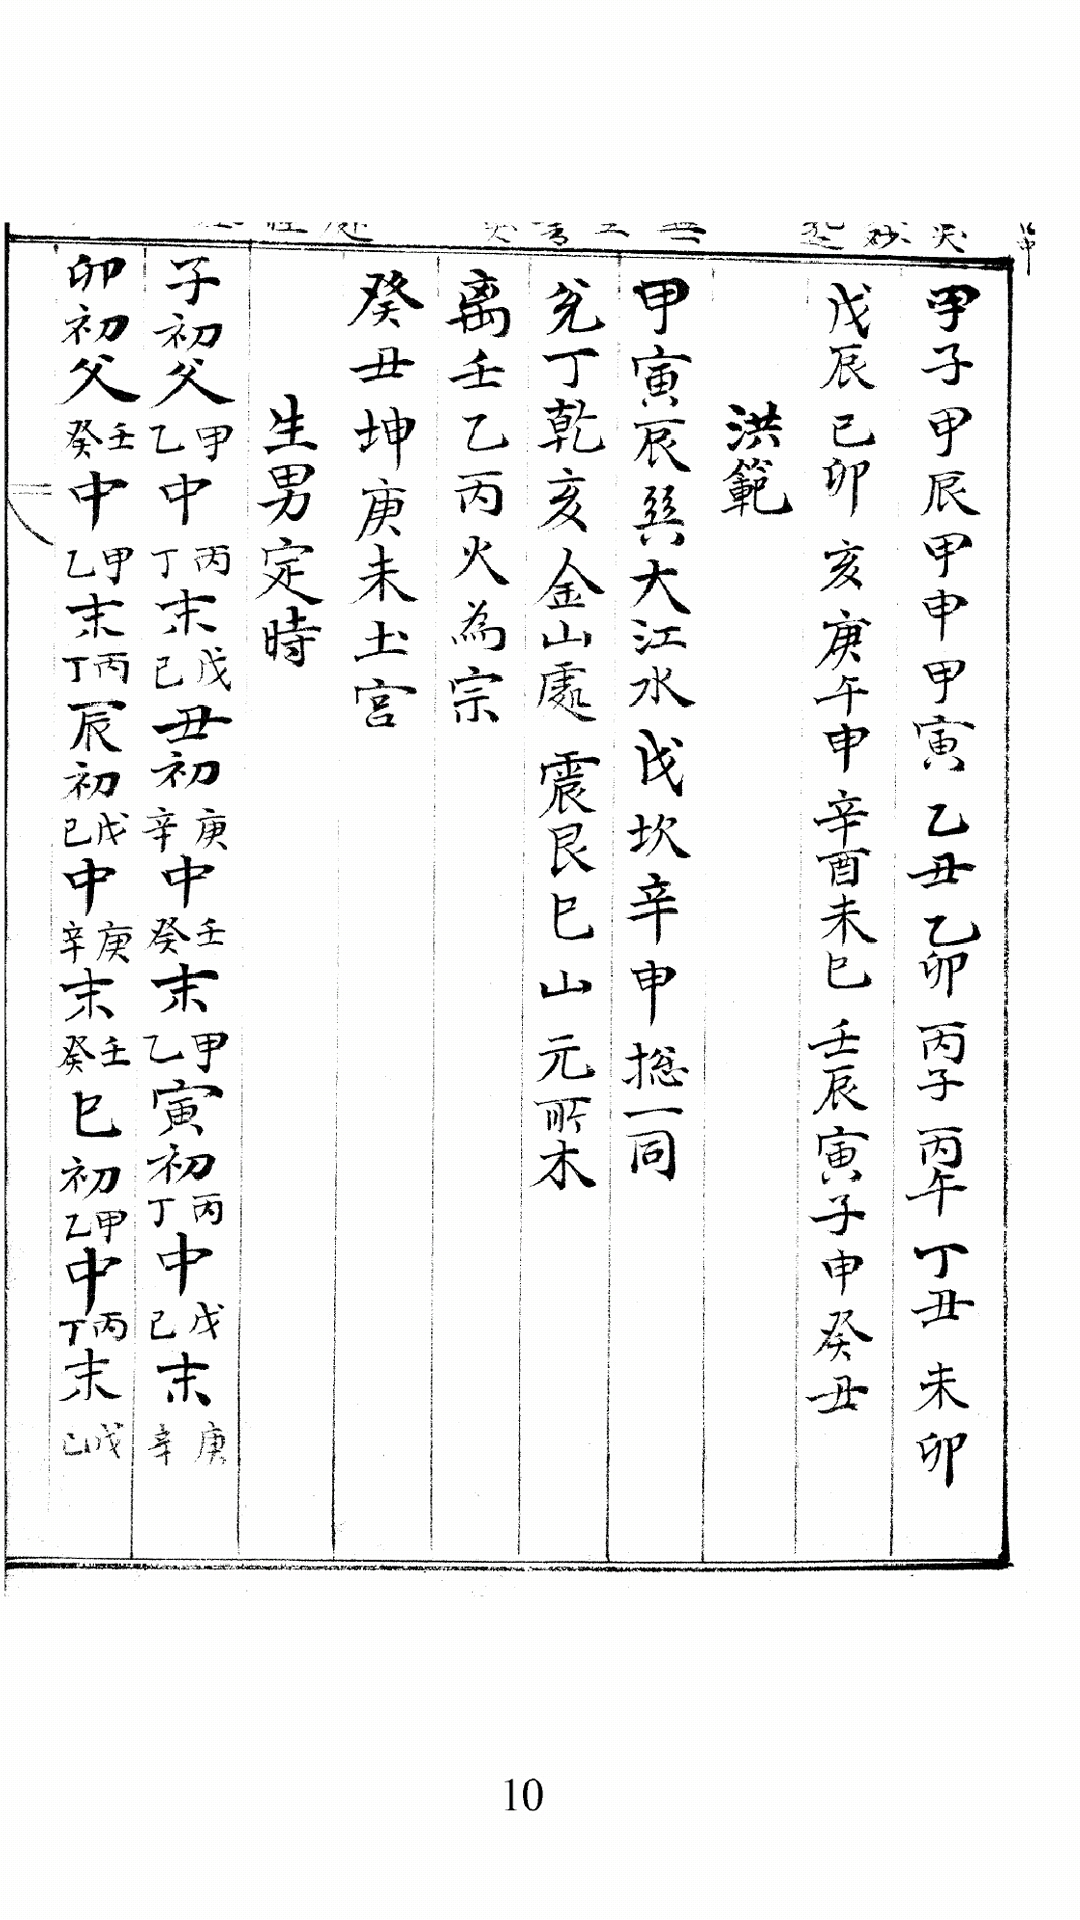 甲子甲辰甲申甲寅乙丑乙卯丙子丙午丁丑未卯
戊辰己卯亥庚午申辛酉未巳壬辰寅子申癸丑
洪範
甲寅辰巽大江水戊坎辛申捴一同
兊丁乾亥金山處震艮巳山元㪽木
离壬乙丙火為宗
癸丑坤庚未土宫
生男定時
子初父甲乙中丙丁末戊己丑初庚辛中壬癸末甲乙寅初丙丁中戊己末庚辛
卯初父壬癸中甲乙末丙丁辰初戊己中庚辛末壬癸巳初甲乙中丙丁末戊己
10